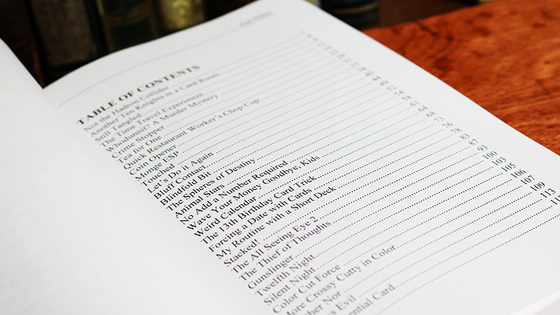 TABLE OF CONTENTS
Not the Hadron Collider
Another Ten Knights in a Card Room
Still Tangled
The Time Travel Experiment
Whodunnit? A Murder Mystery
Crime Stopper
Tea for One
Quick Restaurant Worker's Chop Cup
Coin Opener
Monge ESP
Touched
Let's Do It Again
Bluff Contact
Blindfold Bit
The Spheres of Destiny
Animal Stars
No Add a Number Required
Wave Your Money Goodbye, Kids
Weird Calendar
The 13th Birthday Card Trick
Forcing a Date with Cards
My Routine with a Short Deck
Stacked!
The All Seeing Eye 2
The Thief of Thoughts
Gunslinger
Twelfth Night
Silent Night
Color Cut Force
More Crossy Cutty in Color
her Not
s Evil
ential Card